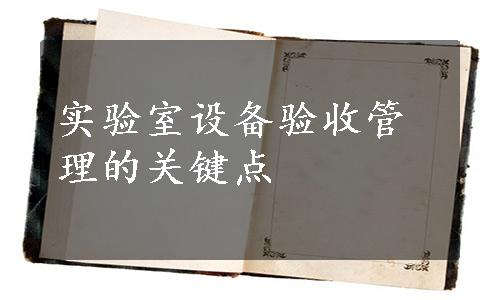 实验室设备验收管
理的关键点